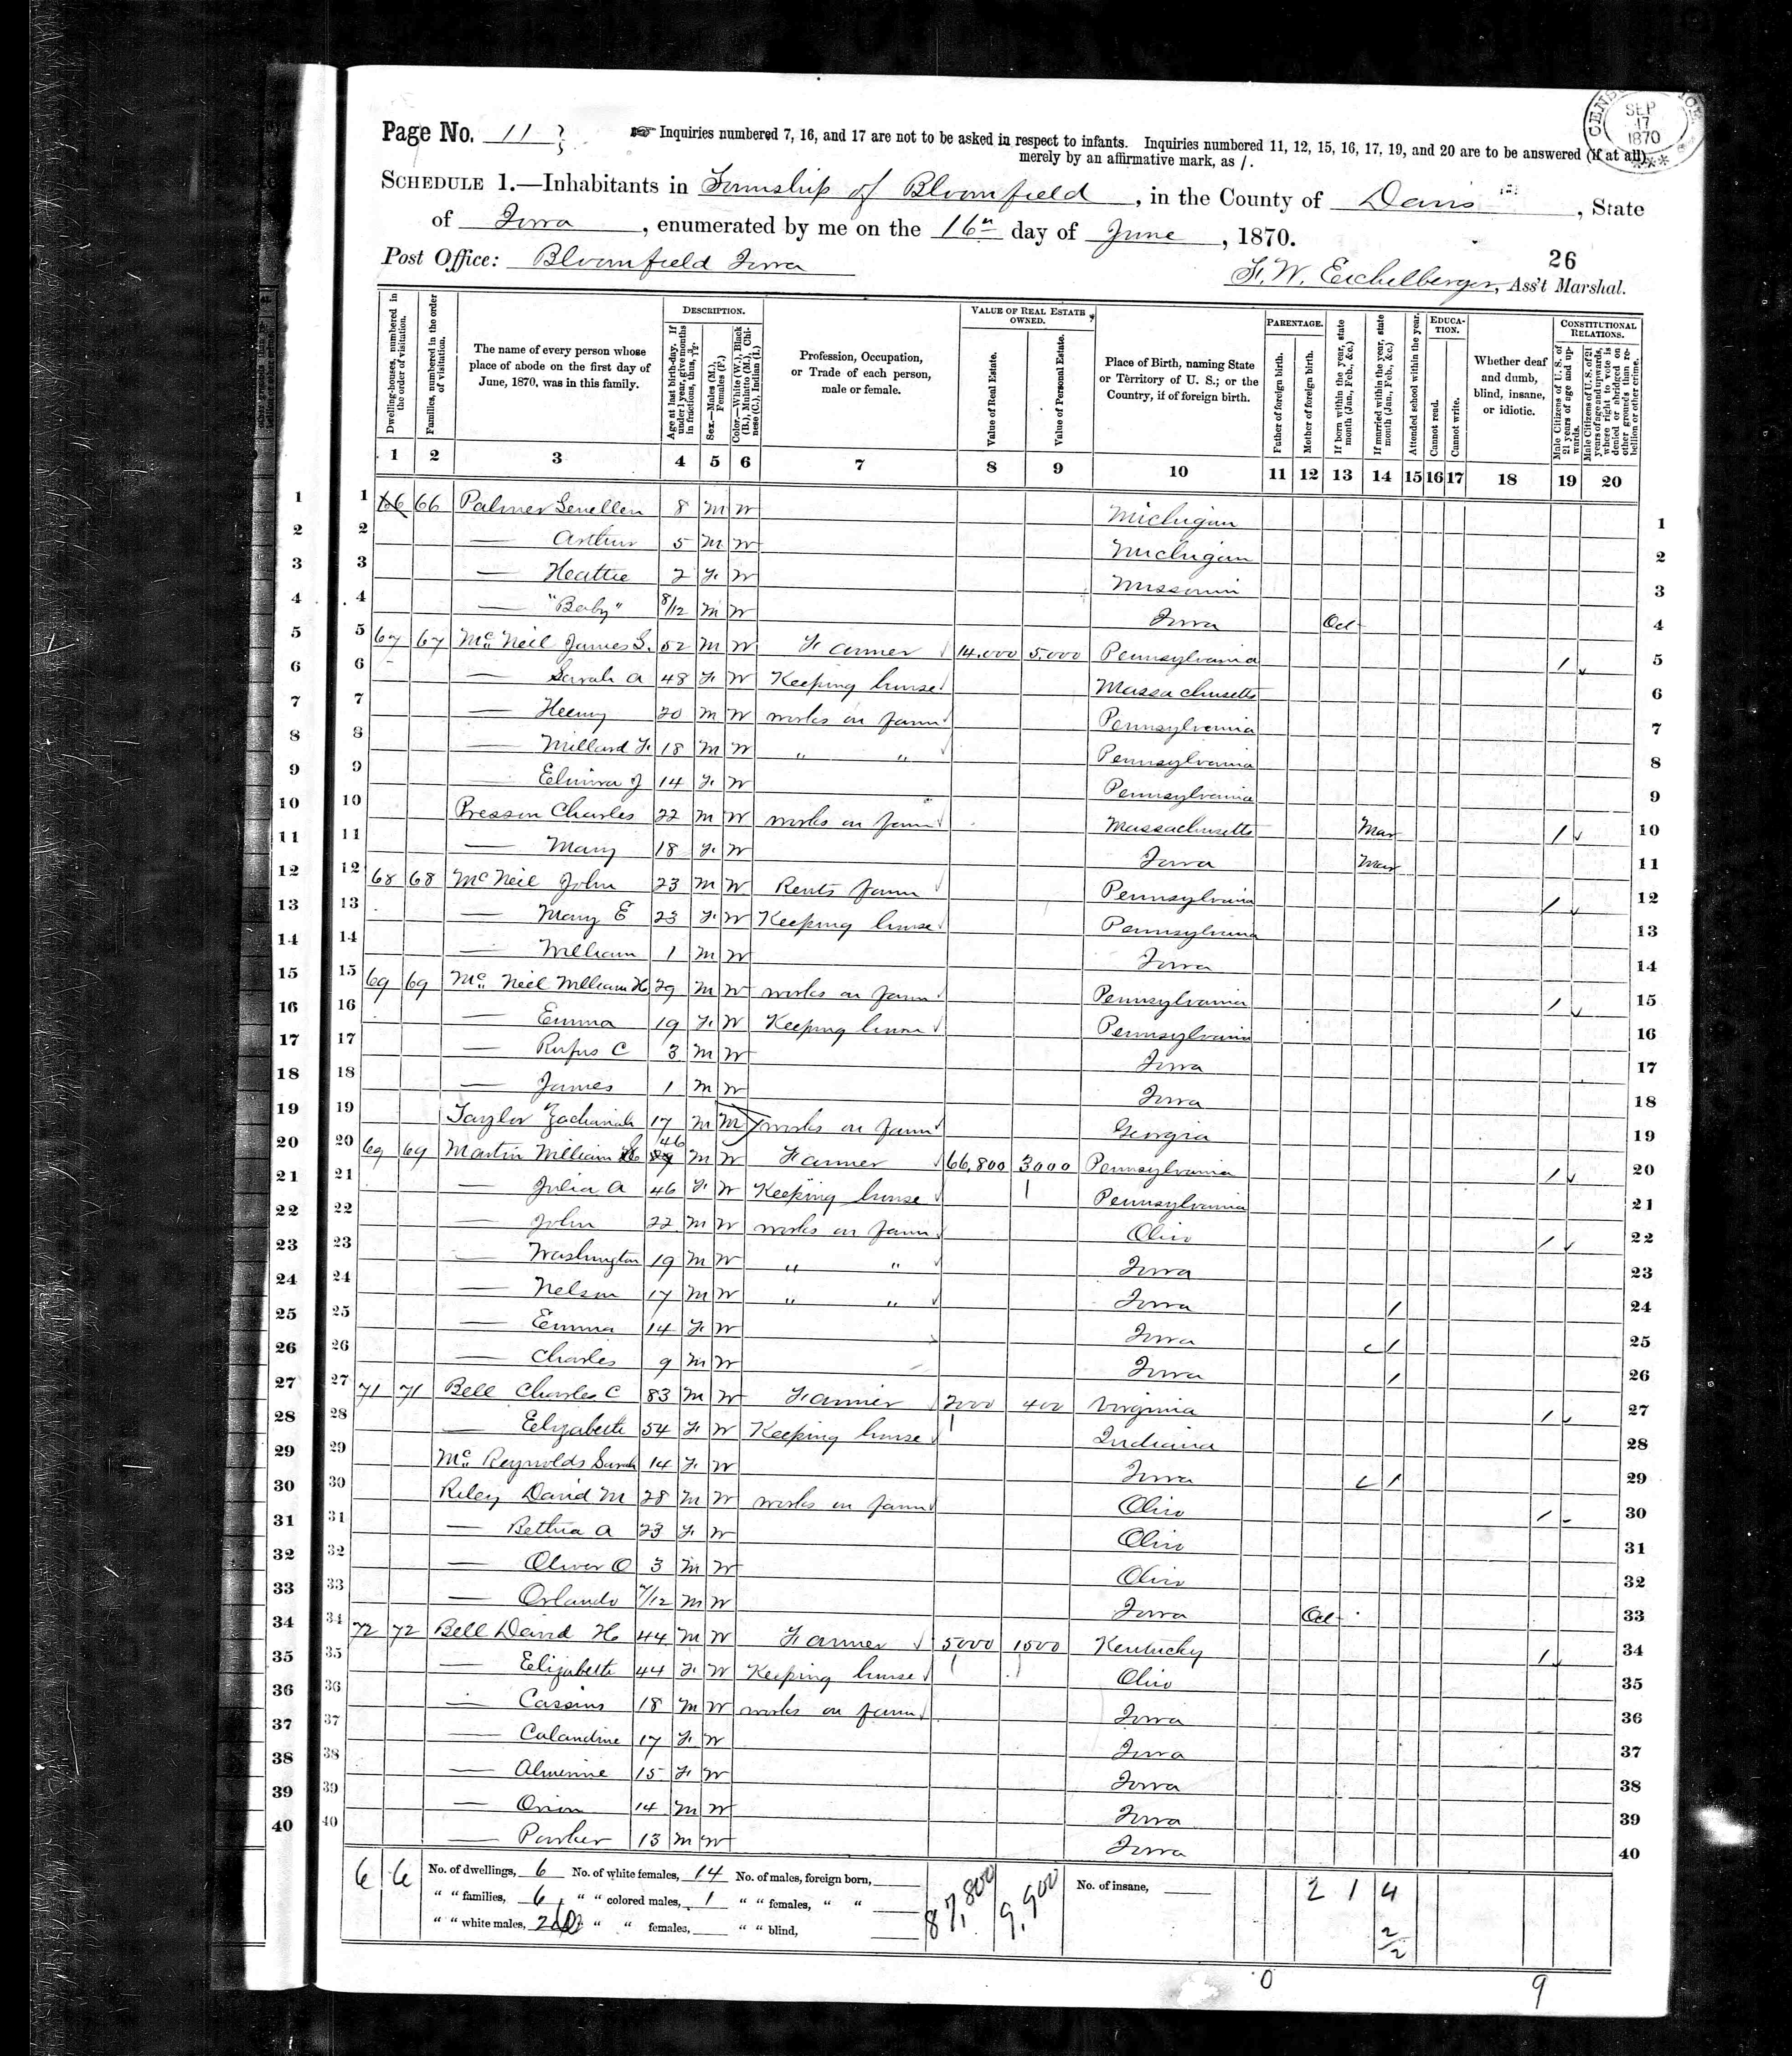 CENSUS OFFICE SEP 17 1870
Page No. 11
Inquiries numbered 7, 16, and 17 are not to be asked in respect to infants. Inquiries numbered 11, 12, 15, 16, 17, 19, and 20 are to be answered (if at all)
merely by an affirmative mark, as /.
SCHEDULE 1.—Inhabitants in Township of Bloomfield, in the County of Davis, State
of Iowa, enumerated by me on the 16th day of June, 1870.
26
Post Office: Bloomfield Iowa
F. W. Eichelberger, Ass't Marshal.
Dwelling-houses, numbered in the order of visitation.
Families, numbered in the order of visitation.
The name of every person whose place of abode on the first day of June, 1870, was in this family.
DESCRIPTION.
Age at last birth-day. If under 1 year, give months in fractions, thus, 3/12.
Sex.—Males (M.), Females (F.)
Color.—White (W.), Black (B.), Mulatto (M.), Chinese (C.), Indian (I.)
Profession, Occupation, or Trade of each person, male or female.
VALUE OF REAL ESTATE OWNED.
Value of Real Estate.
Value of Personal Estate.
Place of Birth, naming State or Territory of U. S.; or the Country, if of foreign birth.
PARENTAGE.
Father of foreign birth.
Mother of foreign birth.
If born within the year, state month (Jan., Feb., &c.)
If married within the year, state month (Jan., Feb., &c.)
Attended school within the year.
EDUCATION.
Cannot read.
Cannot write.
Whether deaf and dumb, blind, insane, or idiotic.
CONSTITUTIONAL RELATIONS.
Male Citizens of U. S. of 21 years of age and upwards.
Male Citizens of U. S. of 21 years of age and upwards, whose right to vote is denied or abridged on other grounds than rebellion or other crime.
1 2 3 4 5 6 7 8 9 10 11 12 13 14 15 16 17 18 19 20
1 66 66 Palmer Lenellen 8 M W Michigan 1
2 — Arthur 5 M W Michigan 2
3 — Heattie 2 F. W Missouri 3
4 — "Baby" 8/12 M W Iowa Oct 4
5 67 67 McNeil James S. 52 M W Farmer 14,000 5,000 Pennsylvania / 5
6 — Sarah A 48 F. W Keeping house Massachusetts 6
7 — Henry 20 M W works on farm Pennsylvania 7
8 — Millard F. 18 M W " " Pennsylvania 8
9 — Elmira J 14 F. W Pennsylvania 9
10 Presson Charles 22 M W works on farm Massachusetts Mar / 10
11 — Mary 18 F. W Iowa Mar 11
12 68 68 McNeil John 23 M W Rents farm Pennsylvania / 12
13 — Mary E 23 F. W Keeping house Pennsylvania 13
14 — William 1 M W Iowa 14
15 69 69 McNeil William H 29 M W works on farm Pennsylvania / 15
16 — Emma 19 F. W Keeping house Pennsylvania 16
17 — Rufus C 3 M W Iowa 17
18 — James 1 M W Iowa 18
19 Taylor Zachariah 17 M M works on farm Georgia 19
20 69 69 Martin William 46 M W Farmer 66,800 3000 Pennsylvania / 20
21 — Julia A 46 F. W Keeping house Pennsylvania 21
22 — John 22 M W works on farm Ohio / 22
23 — Washington 19 M W " " Iowa 23
24 — Nelson 17 M W " " Iowa / 24
25 — Emma 14 F. W Iowa / 25
26 — Charles 9 M W Iowa / 26
27 71 71 Bell Charles C 83 M W Farmer 2000 400 Virginia / 27
28 — Elizabeth 54 F. W Keeping house Indiana 28
29 McReynolds Sarah 14 F. W Iowa / 29
30 Riley David M 28 M W works on farm Ohio / 30
31 — Bethia A 23 F. W Ohio 31
32 — Oliver O 3 M W Ohio 32
33 — Orlando 7/12 M W Iowa Oct 33
34 72 72 Bell David H 44 M W Farmer 5000 1500 Kentucky / 34
35 — Elizabeth 44 F. W Keeping house Ohio 35
36 — Cassius 18 M W works on farm Iowa 36
37 — Calandine 17 F. W Iowa 37
38 — Almenine 15 F. W Iowa 38
39 — Orion 14 M W Iowa 39
40 — Parker 13 M W Iowa 40
6 6 No. of dwellings, 6 No. of white females, 14 No. of males, foreign born, 87,800 9,900 No. of insane, 2 1 4
" " families, 6 " " colored males, 1 " " females, " "
" " white males, " " females, " " blind, 2/2
0 9